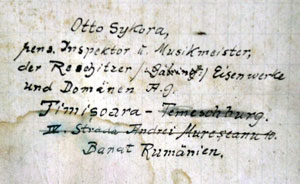 Otto Sykora,
pens. Inspektor u. Musikmeister,
der Reschitzer Eisenwerke
und Domänen A.G.
Timisoara - Temeschburg.
IV. Strada Andrei Mureseanu
Banat Rumänien.